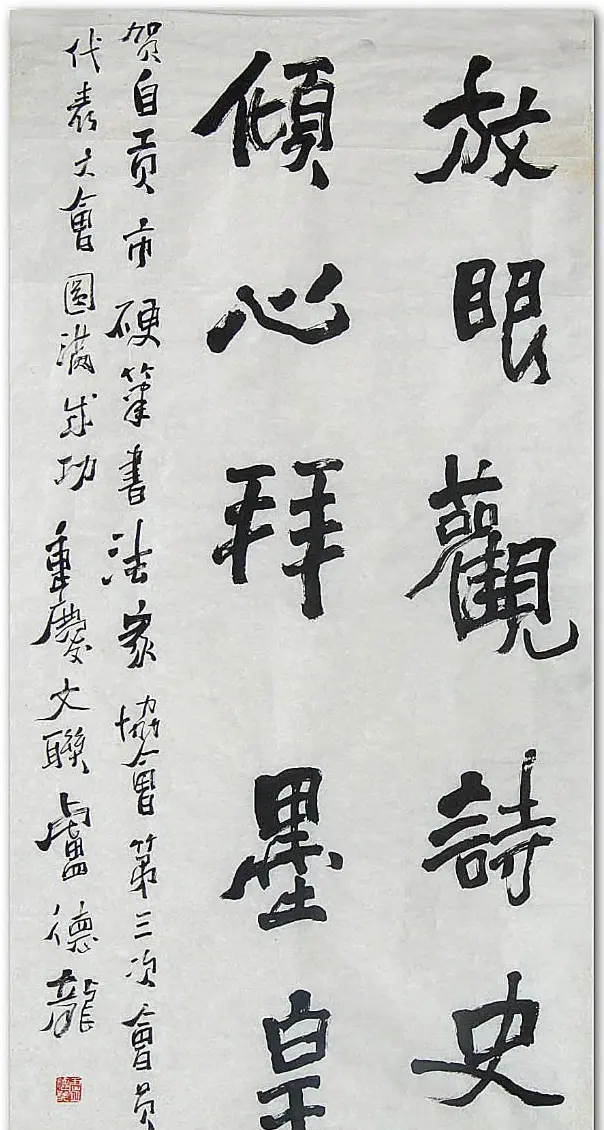 放眼觀詩史
傾心拜墨皇
贺自贡市硬笔書法家協會第三次會员
代表大會圆满成功 重慶文聯 盧德龍